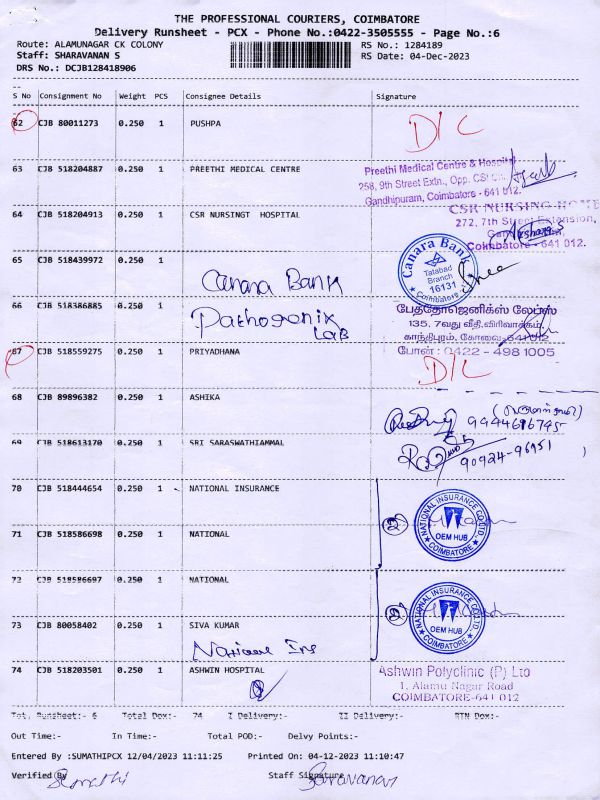 THE PROFESSIONAL COURIERS, COIMBATORE
Delivery Runsheet - PCX - Phone No.:0422-3505555 - Page No.:6
Route: ALAMUNAGAR CK COLONY RS No.: 1284189
Staff: SHARAVANAN S RS Date: 04-Dec-2023
DRS No.: DCJB128418906
S No Consignment No Weight PCS Consignee Details Signature
62 CJB 80011273 0.250 1 PUSHPA D/C
63 CJB 518204887 0.250 1 PREETHI MEDICAL CENTRE
Preethi Medical Centre & Hospital
258, 9th Street Extn., Opp. CSI
Gandhipuram, Coimbatore - 641 012.
64 CJB 518204913 0.250 1 CSR NURSINGT HOSPITAL
CSR NURSING HOME
272, 7th Street Extension,
Coimbatore - 641 012.
65 CJB 518439972 0.250 1
Canara Bank
Canara Bank
Tatabad
Branch
16131
Coimbatore
66 CJB 518386885 0.250 1
Pathogenix
Lab
பேத்தோஜெனிக்ஸ் லேப்ஸ்
135, 7வது வீதி, விரிவாக்கம்,
காந்திபுரம், கோவை- 641 012
போன் : 0422 - 498 1005
67 CJB 518559275 0.250 1 PRIYADHANA D/C
68 CJB 89896382 0.250 1 ASHIKA
9944616795
69 CJB 518613170 0.250 1 SRI SARASWATHIAMMAL
90924-96951
70 CJB 518444654 0.250 1 NATIONAL INSURANCE
71 CJB 518586698 0.250 1 NATIONAL
NATIONAL INSURANCE CO LTD.
OEM HUB
COIMBATORE
72 CJB 518586697 0.250 1 NATIONAL
73 CJB 80058402 0.250 1 SIVA KUMAR
National Ins
NATIONAL INSURANCE CO LTD.
OEM HUB
COIMBATORE
74 CJB 518203501 0.250 1 ASHWIN HOSPITAL
Ashwin Polyclinic (P) Ltd
1, Alamu Nagar Road
COIMBATORE-641 012
Tot. Runsheet:- 6 Total Dox:- 74 I Delivery:- II Delivery:- RTN Dox:-
Out Time:- In Time:- Total POD:- Delvy Points:-
Entered By :SUMATHIPCX 12/04/2023 11:11:25 Printed On: 04-12-2023 11:10:47
Verified By Sumathi Staff Signature Saravanan